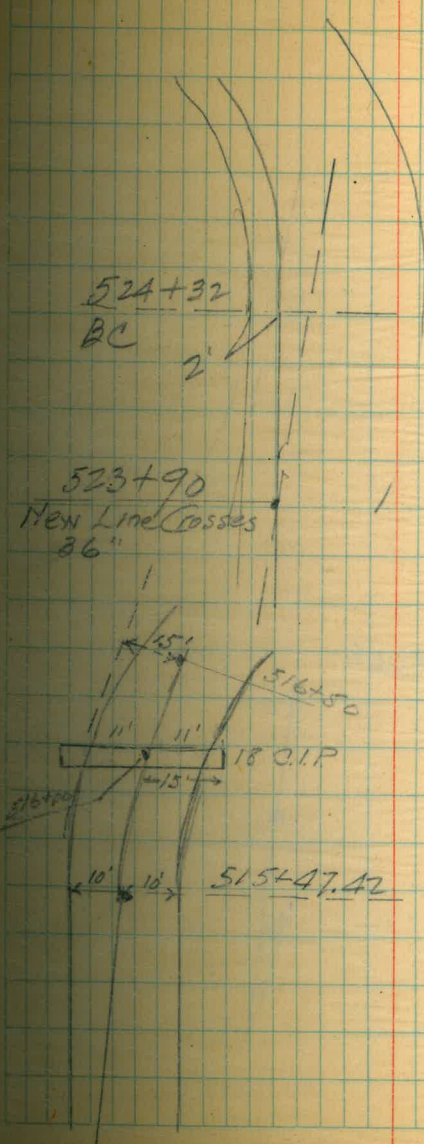 524+32
BC
2'
523+90
New Line Crosses
36"
15'
516+50
11' 11'
18 C.I.P.
15'
10' 10' 515+47.42